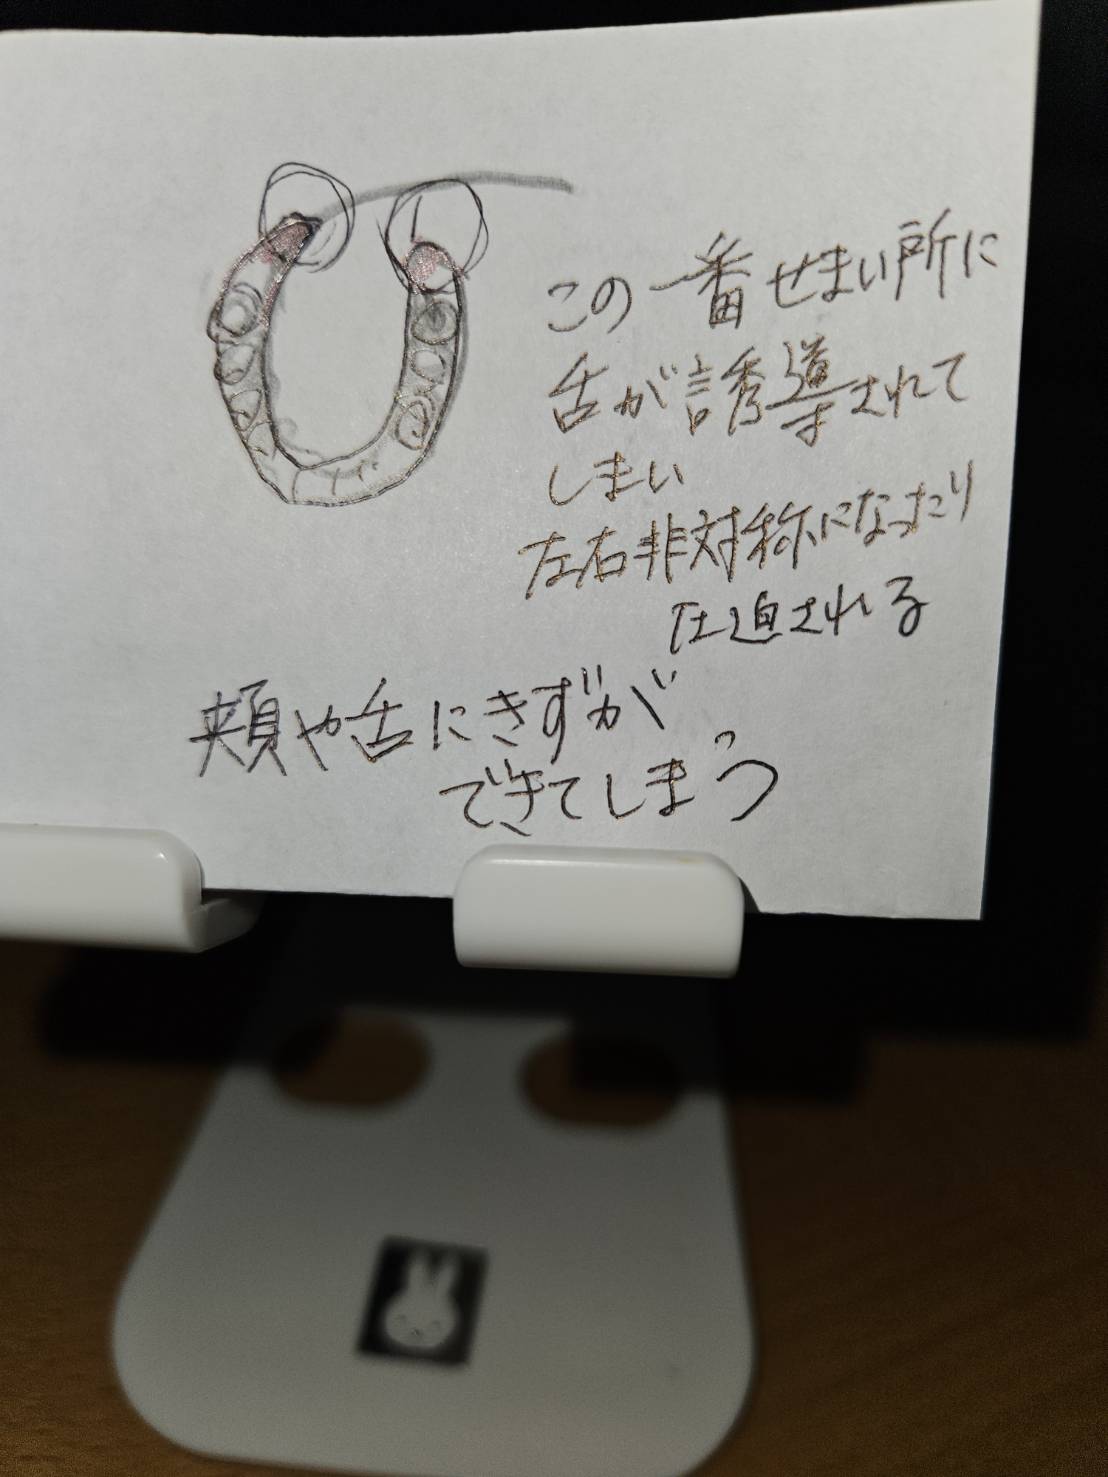 この一番せまい所に
舌が誘導されて
しまい
左右非対称になったり
圧迫される
頬や舌にきずが
できてしまう